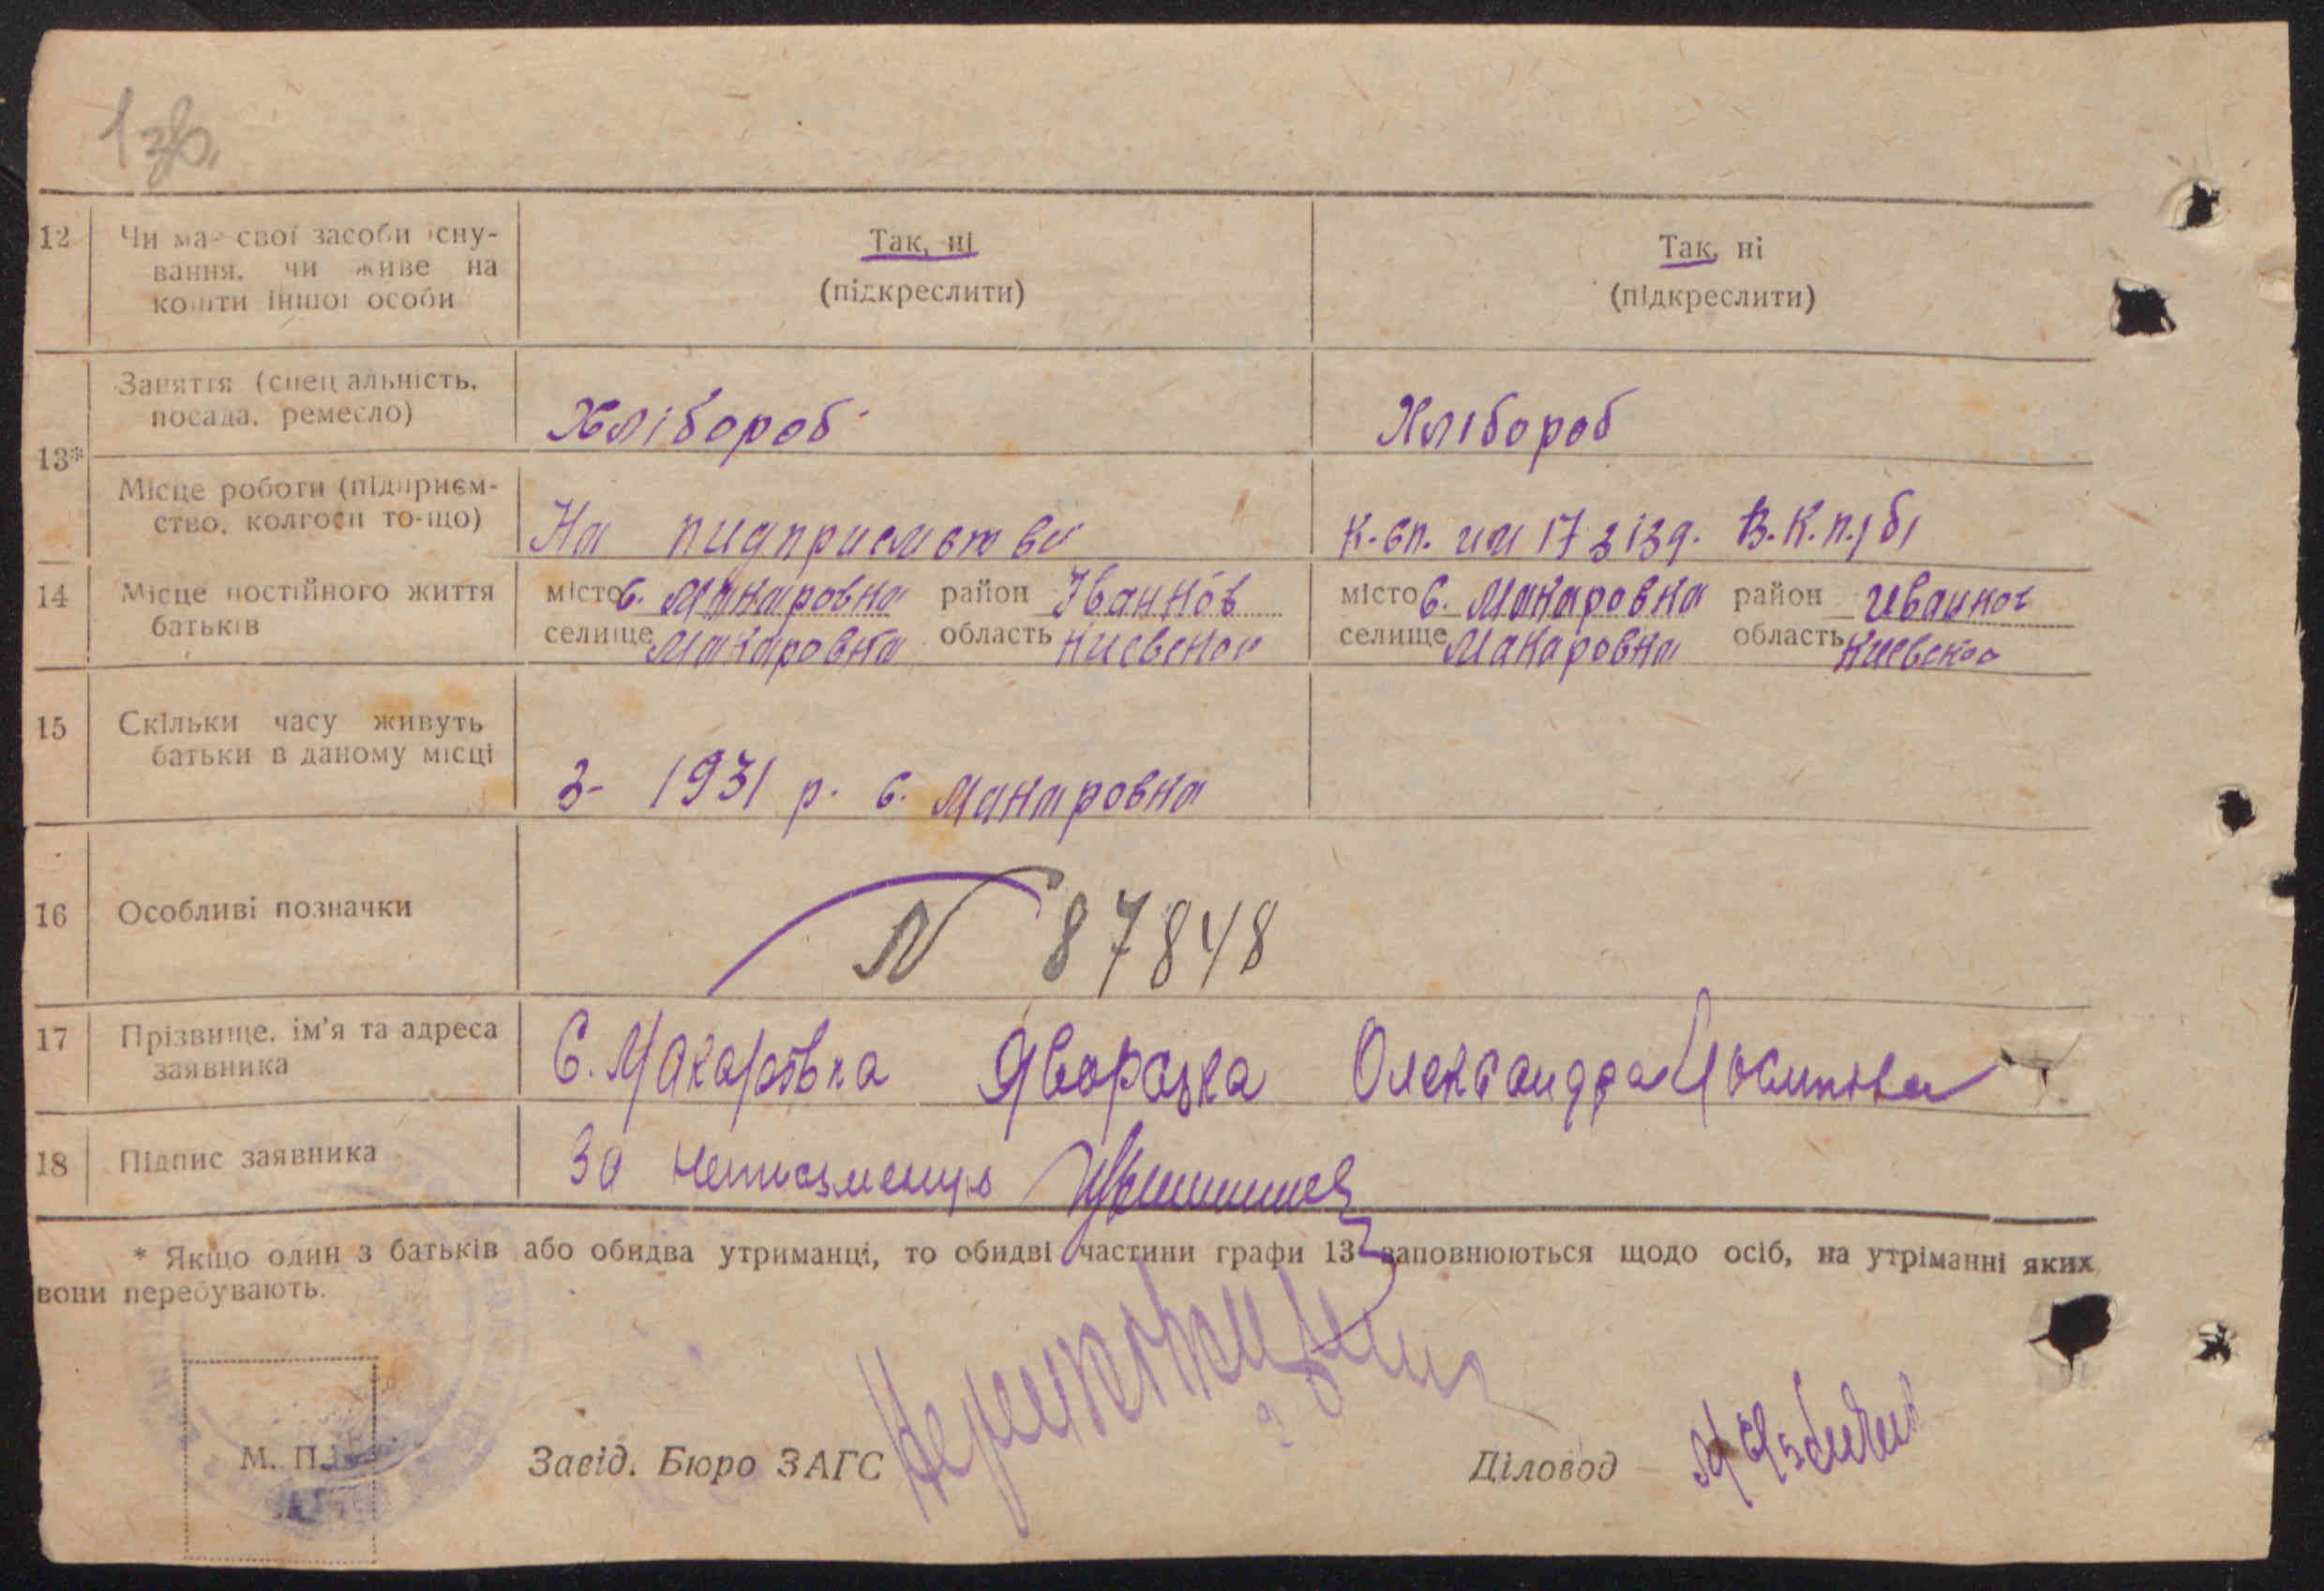 1 зв.
12 Чи має свої засоби існу- Так, ні Так, ні
вання, чи живе на (підкреслити) (підкреслити)
кошти іншої особи
Заняття (спеціальність, посада, ремесло) Хлібороб Хлібороб
13*
Місце роботи (підприєм- На пидприемстви К-сп. им 17 зізд. В.К.П.(б)
ство, колгосп то-що)
14 Місце постійного життя місто с. Макаровка район Іванков місто с. Макаровка район Иванков
батьків селище Макаровка область Киевской селище Макаровка область Киевской
15 Скільки часу живуть
батьки в даному місці З- 1931 р. с. Макаровка
16 Особливі позначки N 87848
17 Прізвище, ім'я та адреса С. Макаровка Яворська Олександра
заявника
18 Підпис заявника За неписменую
* Якщо один з батьків або обидва утриманці, то обидві частини графи 13 заповнюються щодо осіб, на утріманні яких
вони перебувають.
М. П.
Завід. Бюро ЗАГС Діловод